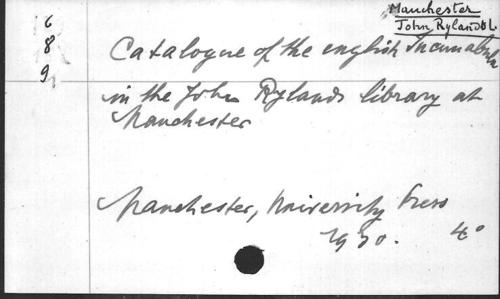 Manchester
John Rylands L.
6
8
9
Catalogue of the english Incunabula
in the John Rylands library at
Manchester
Manchester, University Press
1930. 4°